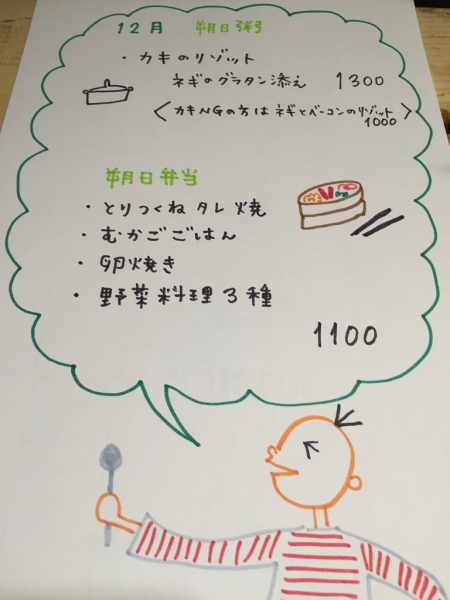 12月 朔日粥
・カキのリゾット
ネギのグラタン添え 1300
〈カキNGの方はネギとベーコンのリゾット〉
1000
朔日弁当
・とりつくねタレ焼
・むかごごはん
・卵焼き
・野菜料理3種
1100